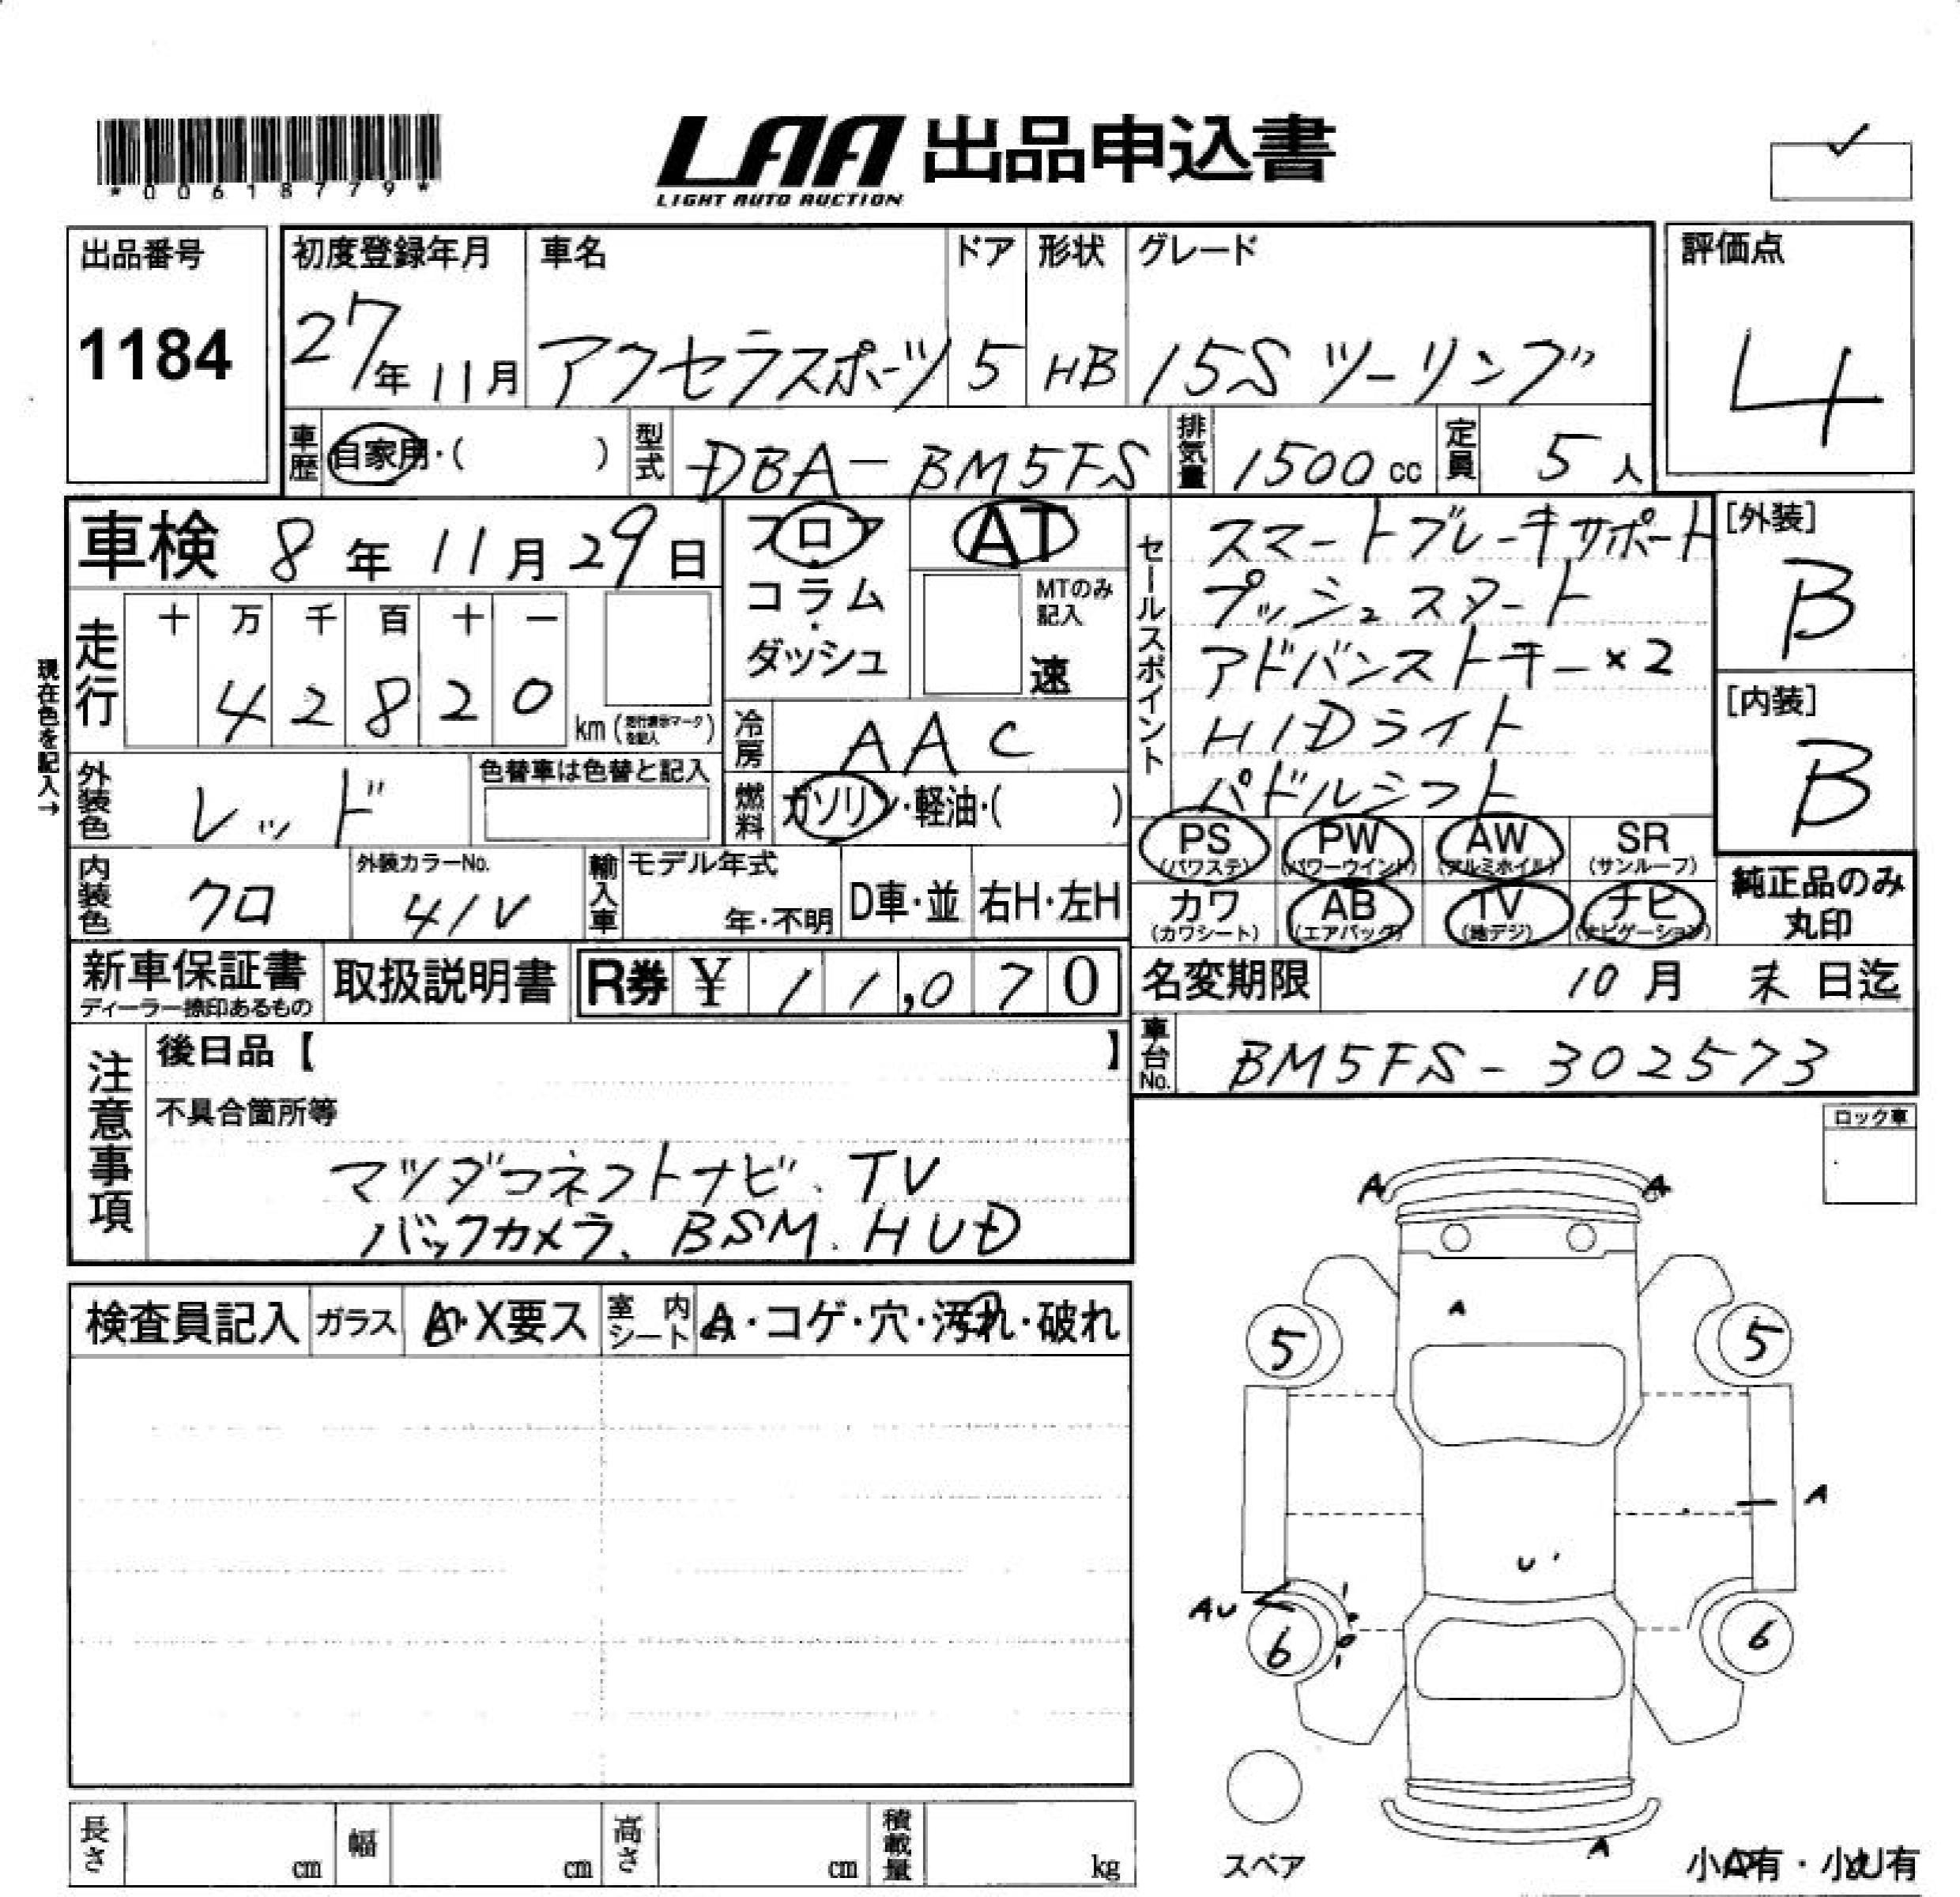 *00618779*
LAA 出品申込書
LIGHT AUTO AUCTION
出品番号
1184
初度登録年月
27年11月
車名
アクセラスポーツ
ドア
5
形状
HB
グレード
15S ツーリング
評価点
4
車歴 自家用・( )
型式 DBA-BM5FS
排気量 1500cc
定員 5人
車検 8年11月29日
フロア
コラム
ダッシュ
AT
MTのみ記入
速
セールスポイント
スマートブレーキサポート
プッシュスタート
アドバンストキー×2
HIDライト
パドルシフト
[外装]
B
[内装]
B
現在色を記入→
走行
十 万 千 百 十 一
4 2 8 2 0
km (走行表示マークを記入)
冷房 AAC
外装色 レッド
色替車は色替と記入
燃料 ガソリン・軽油・( )
PS (パワステ)
PW (パワーウインド)
AW (アルミホイル)
SR (サンルーフ)
カワ (カワシート)
AB (エアバッグ)
TV (地デジ)
ナビ (ナビゲーション)
純正品のみ丸印
内装色 クロ
外装カラーNo.
41V
輸入車
モデル年式
年・不明
D車・並
右H・左H
新車保証書
ディーラー捺印あるもの
取扱説明書
R券 ¥ 11,070
名変期限 10月 末日迄
車台No. BM5FS-302573
注意事項
後日品【 】
不具合箇所等
マツダコネクトナビ、TV
バックカメラ、BSM、HUD
ロック車
検査員記入
ガラス A・X要ス
室内シート A・コゲ・穴・汚れ・破れ
A A
A
5 5
A
U'
AU
6 6
A
スペア
小A有・小U有
長さ cm
幅 cm
高さ cm
積載量 kg